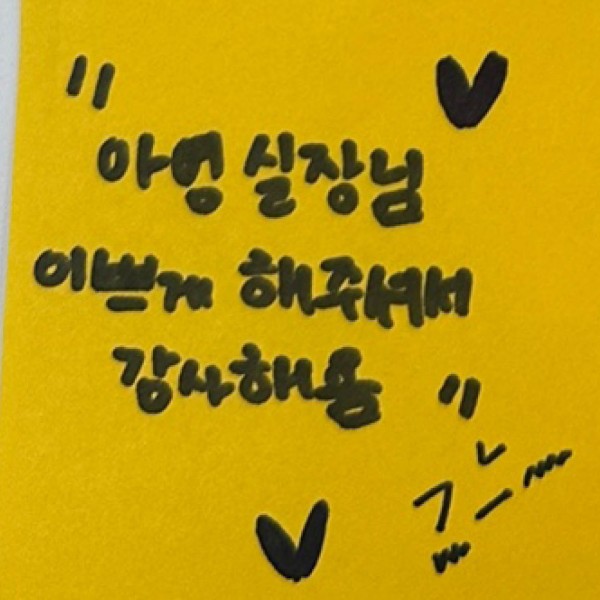 "아영 실장님
이쁘게 해주셔서
감사해욤"